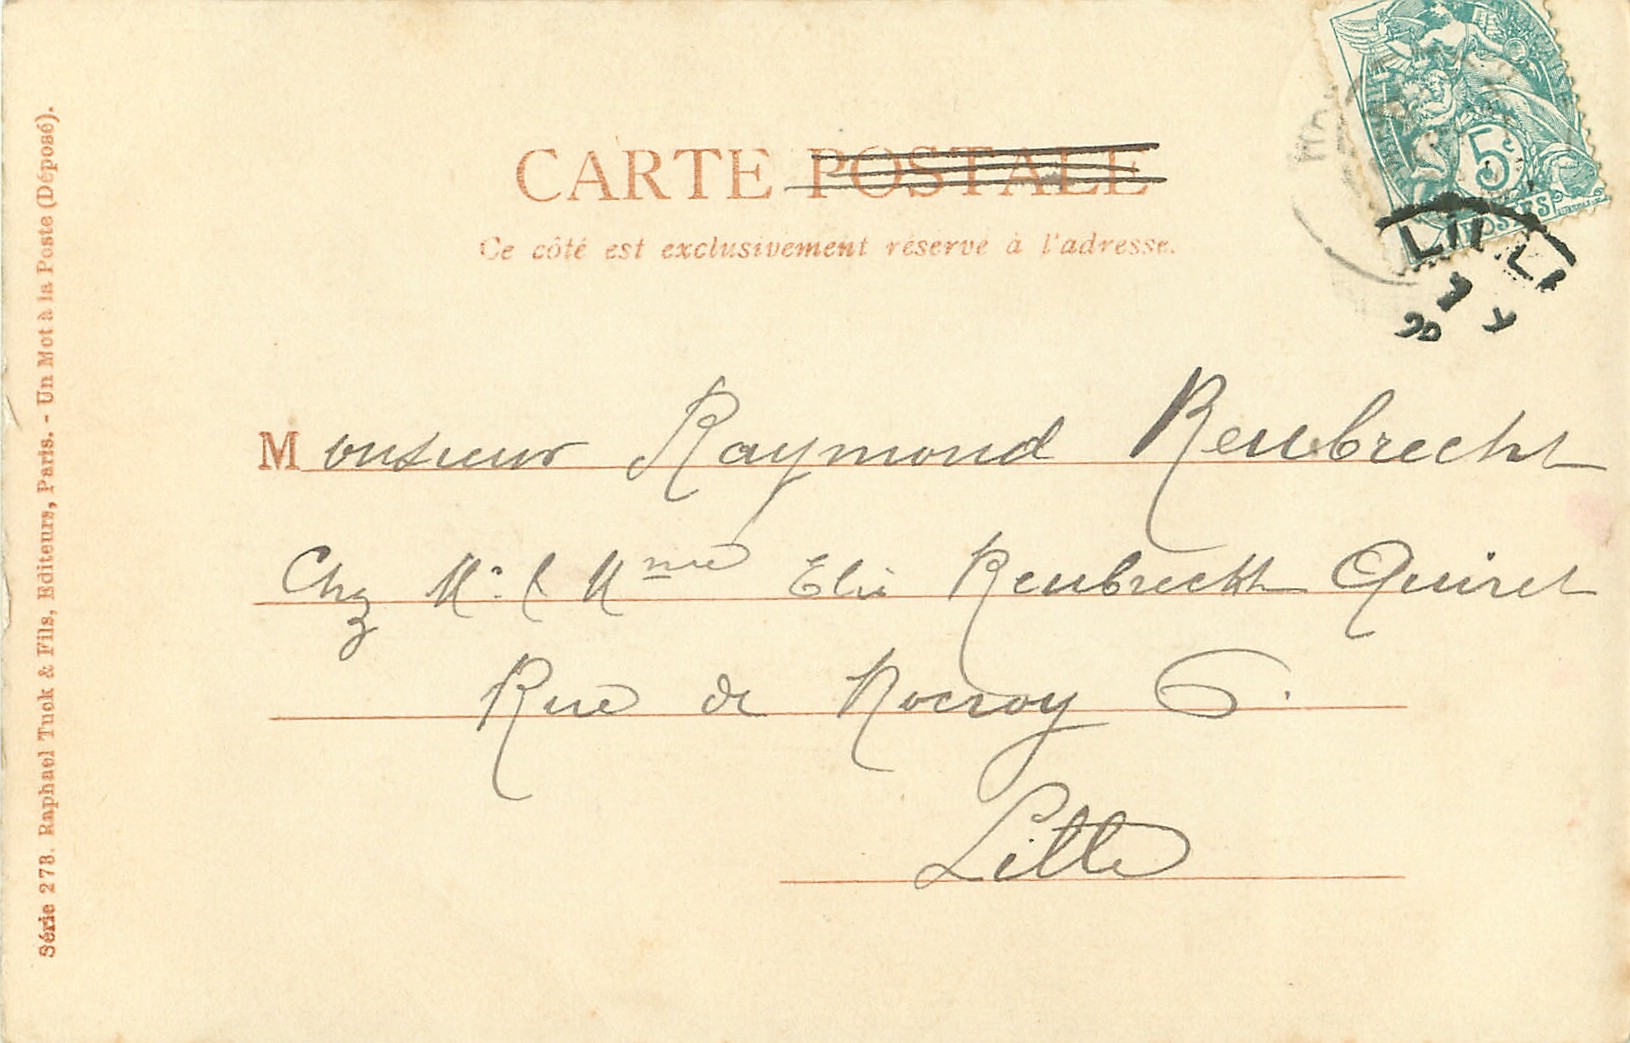 CARTE POSTALE
Ce côté est exclusivement réservé à l'adresse.
5c
POSTES
LILLE
Monsieur Raymond Reubrecht
Chez Mr & Mme Elie Reubrecht Quiret
Rue de Rocroy 6.
Lille
Série 273. Raphael Tuck & Fils, Editeurs, Paris. - Un Mot à la Poste (Déposé).